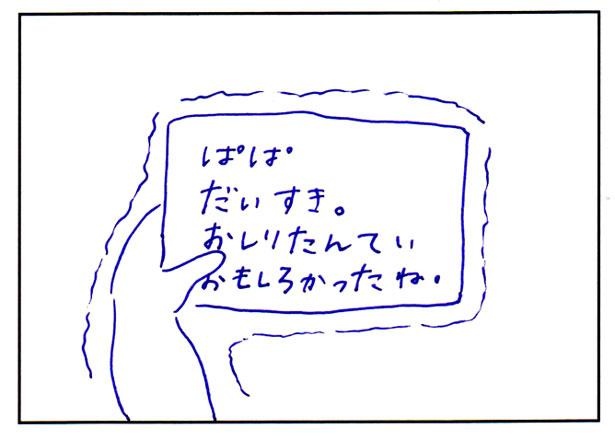 ぱぱ
だいすき。
おしりたんてい
おもしろかったね。